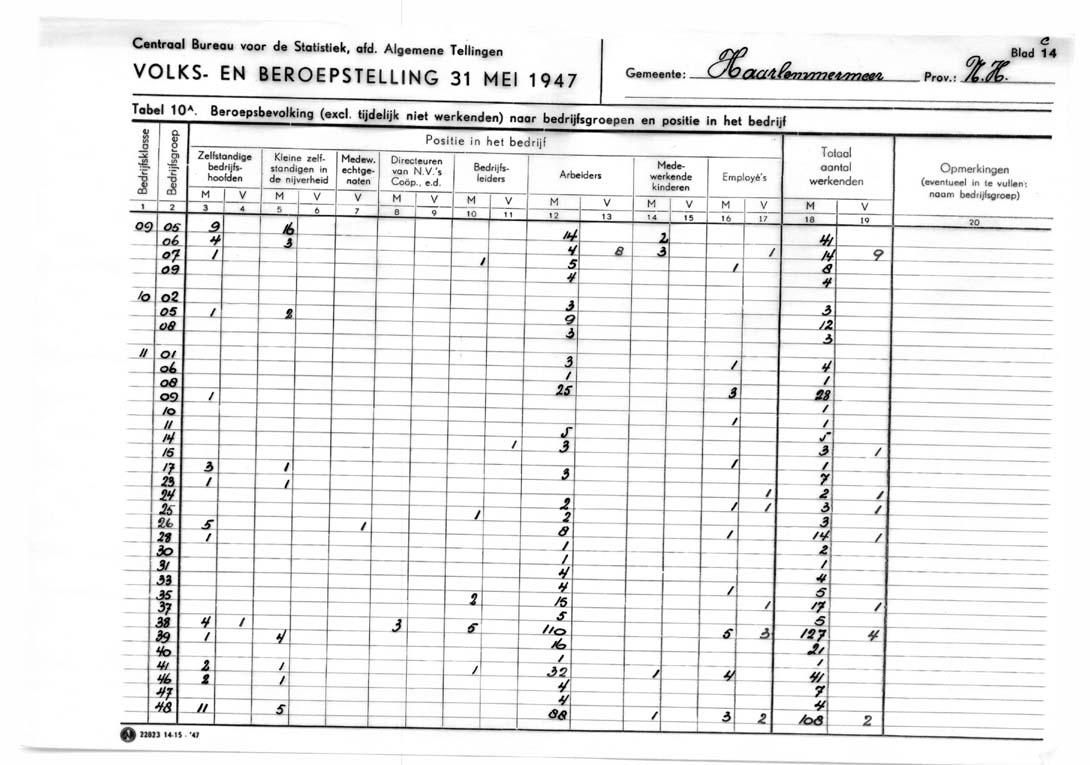 Centraal Bureau voor de Statistiek, afd. Algemene Tellingen
VOLKS- EN BEROEPSTELLING 31 MEI 1947
Gemeente: Haarlemmermeer Prov.: N.H.
c
Blad 14
Tabel 10A. Beroepsbevolking (excl. tijdelijk niet werkenden) naar bedrijfsgroepen en positie in het bedrijf
Bedrijfsklasse
Bedrijfsgroep
Positie in het bedrijf
Zelfstandige bedrijfs- hoofden
Kleine zelf- standigen in de nijverheid
Medew. echtge- noten
Directeuren van N.V.'s Coöp., e.d.
Bedrijfs- leiders
Arbeiders
Mede- werkende kinderen
Employé's
Totaal aantal werkenden
Opmerkingen (eventueel in te vullen: naam bedrijfsgroep)
M V M V V M V M V M V M V M V M V
1 2 3 4 5 6 7 8 9 10 11 12 13 14 15 16 17 18 19 20
09 05 9 16 14 2 41
06 4 3 4 8 3 1 14 9
07 1 1 5 1 8
09 4 4
10 02 3 3
05 1 2 9 12
08 3 3
11 01 3 1 4
06 1 1
08 25 3 28
09 1 1
10 1 1
11 5 5
14 1 3 3 1
15 1 1
17 3 1 3 7
23 1 1 1 2 1
24 2 1 1 3 1
25 1 2 3
26 5 1 8 1 14 1
28 1 1 2
30 1 1
31 4 4
33 4 1 5
35 2 15 1 17 1
37 5 5
38 4 1 3 5 110 5 3 127 4
39 1 4 16 21
40 1 1
41 2 1 1 32 1 4 41
46 2 1 4 7
47 4 4
48 11 5 88 1 3 2 108 2
22823 14-15 - '47